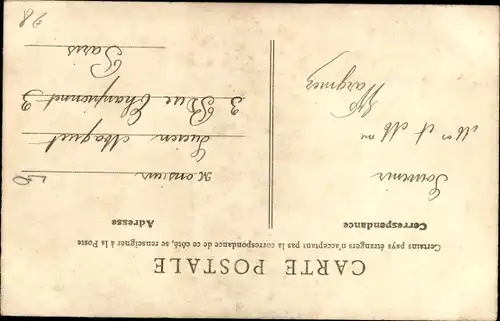 CARTE POSTALE
Certains pays étrangers n'acceptant pas la correspondance de ce côté, se renseigner à la Poste
Correspondance
Souvenir
Mr et Mme
Adresse
Monsieur
Lucien Maquet
3 Rue Championnet 3
Paris